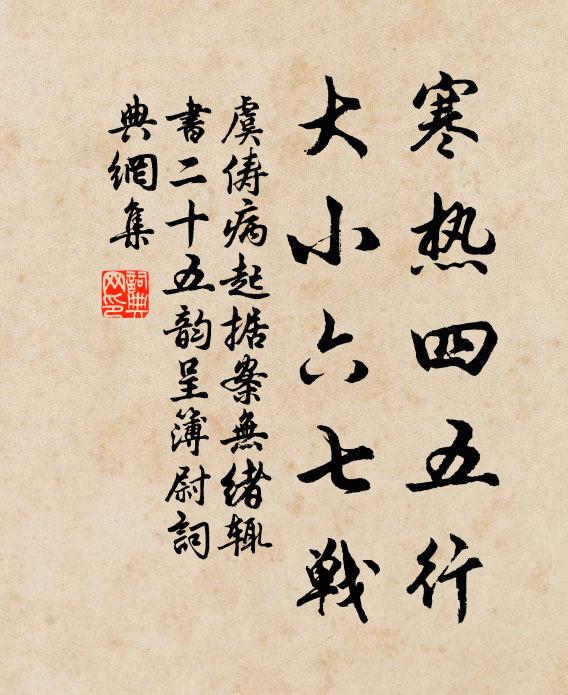 寒热四五行
大小六七戦
虞俦病起据案無绪辄
書二十五韵呈簿尉詞
典網集
詞典
网印